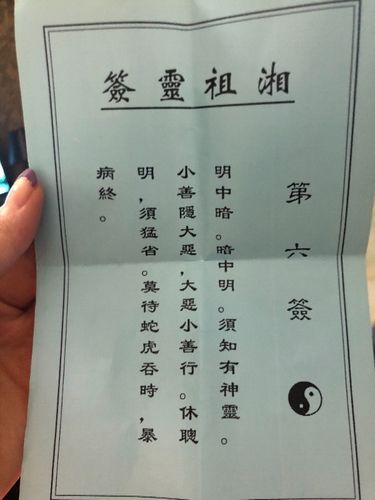 湘祖靈簽
第六簽
明中暗。暗中明。須知有神靈。
小善隱大惡,大惡小善行。休聰
明,須猛省。莫待蛇虎吞時,暴
病終。